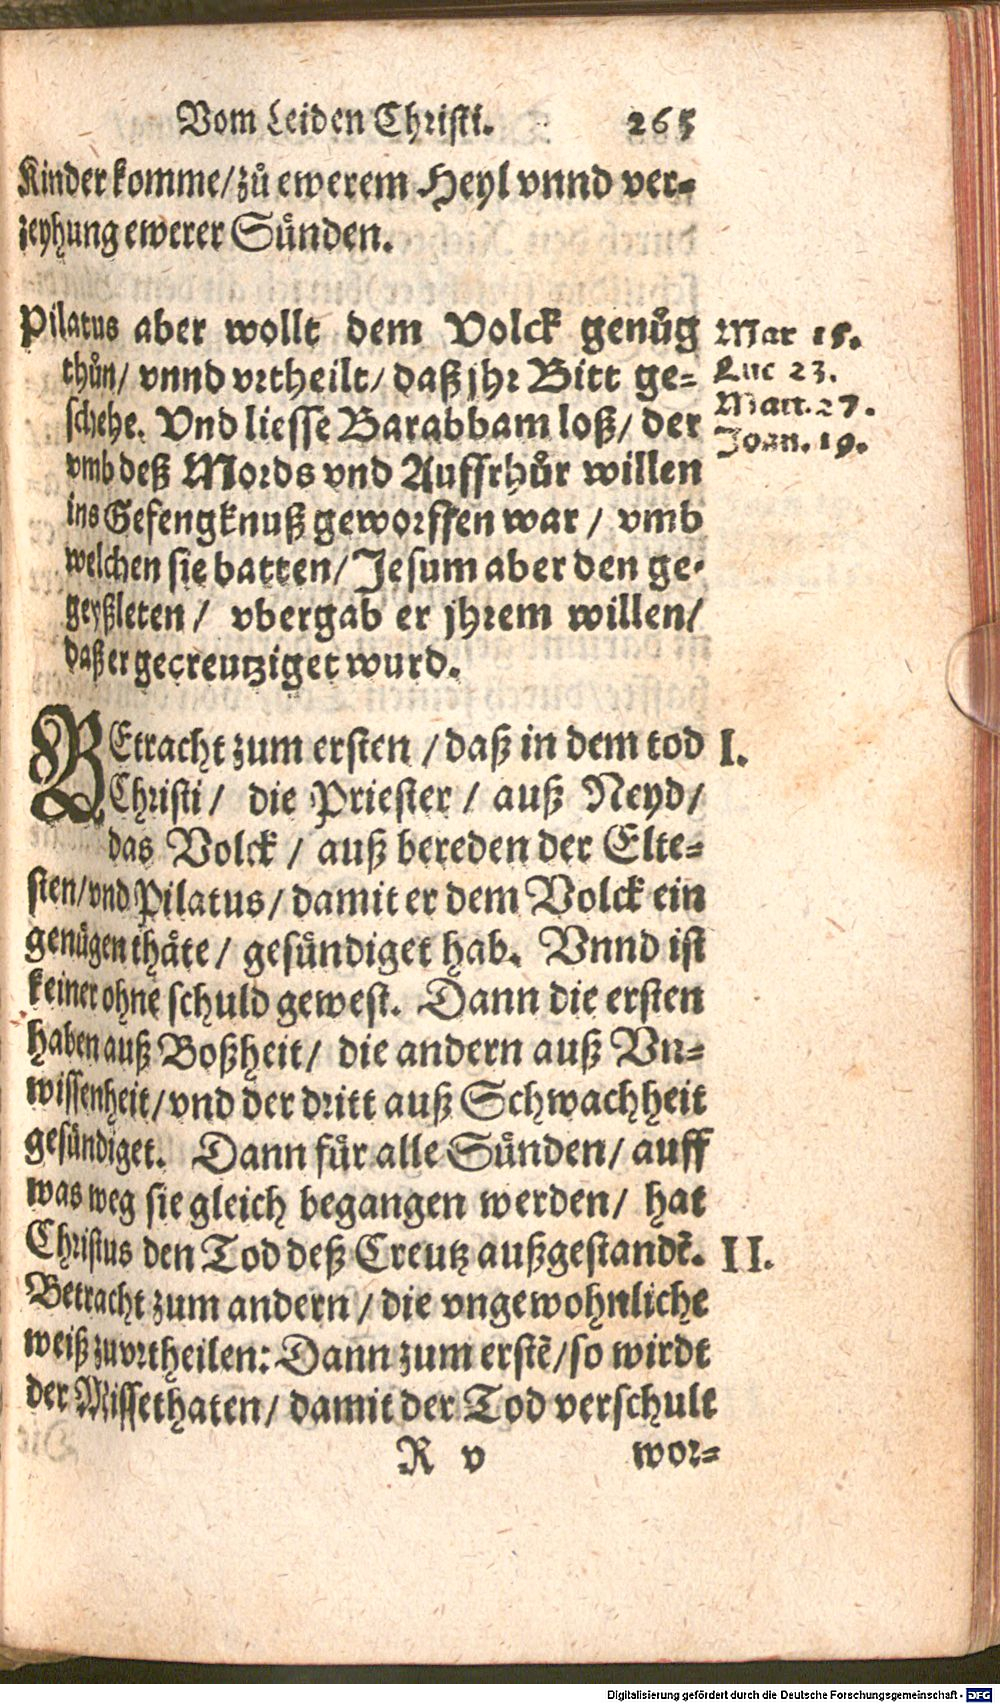 Vom Leiden Christi. 265
Kinder komme/zů ewerem Heyl vnnd ver-
zeyhung ewerer Sünden.
Pilatus aber wollt dem Volck genůg
thůn/ vnnd vrtheilt/ daß jhr Bitt ge-
schehe. Vnd liesse Barabbam loß/ der
vmb deß Mords vnd Auffrhůr willen
ins Gefengknuß geworffen war / vmb
welchen sie batten/ Jesum aber den ge-
geyßleten / vbergab er jhrem willen/
daß er gecreutziget wurd.
Mar 15.
Luc 23.
Matt. 27.
Joan. 19.
BEtracht zum ersten / daß in dem tod
Christi / die Priester / auß Neyd/
das Volck / auß bereden der Elte-
sten/vnd Pilatus/ damit er dem Volck ein
genügen thäte/ gesündiget hab. Vnnd ist
keiner ohne schuld gewest. Dann die ersten
haben auß Boßheit/ die andern auß Vn-
wissenheit/vnd der dritt auß Schwachheit
gesündiget. Dann für alle Sünden/ auff
was weg sie gleich begangen werden/ hat
Christus den Tod deß Creutz außgestandẽ.
Betracht zum andern / die vngewohnliche
weiß zuvrtheilen: Dann zum erstẽ/so wirdt
der Missethaten/ damit der Tod verschult
I.
II.
R v wor-
Digitalisierung gefördert durch die Deutsche Forschungsgemeinschaft - DFG